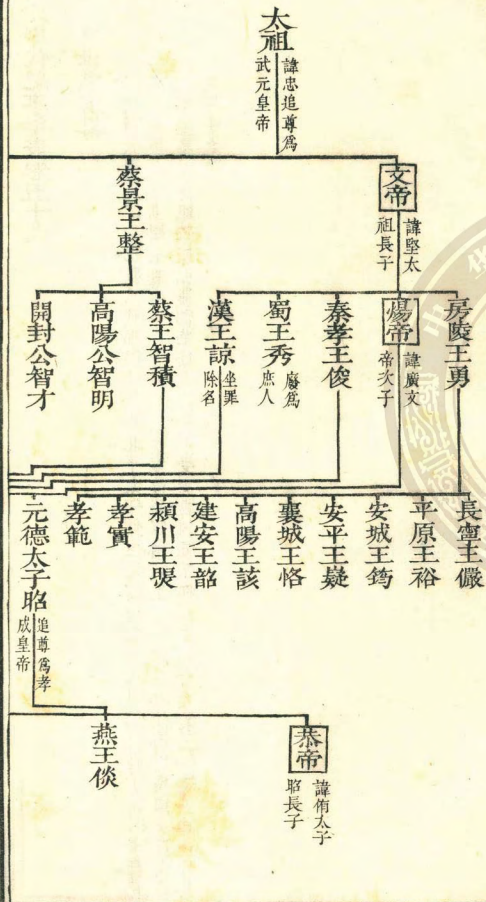 太祖
諱忠追尊爲
武元皇帝
文帝
諱堅太
祖長子
蔡景王整
房陵王勇
煬帝
諱廣文
帝次子
秦孝王俊
蜀王秀
廢爲
庶人
漢王諒
坐罪
除名
蔡王智積
高陽公智明
開封公智才
長寧王儼
平原王裕
安城王筠
安平王嶷
襄城王恪
高陽王該
建安王韶
潁川王煚
孝實
孝範
元德太子昭
追尊爲孝
成皇帝
恭帝
諱侑太子
昭長子
燕王倓